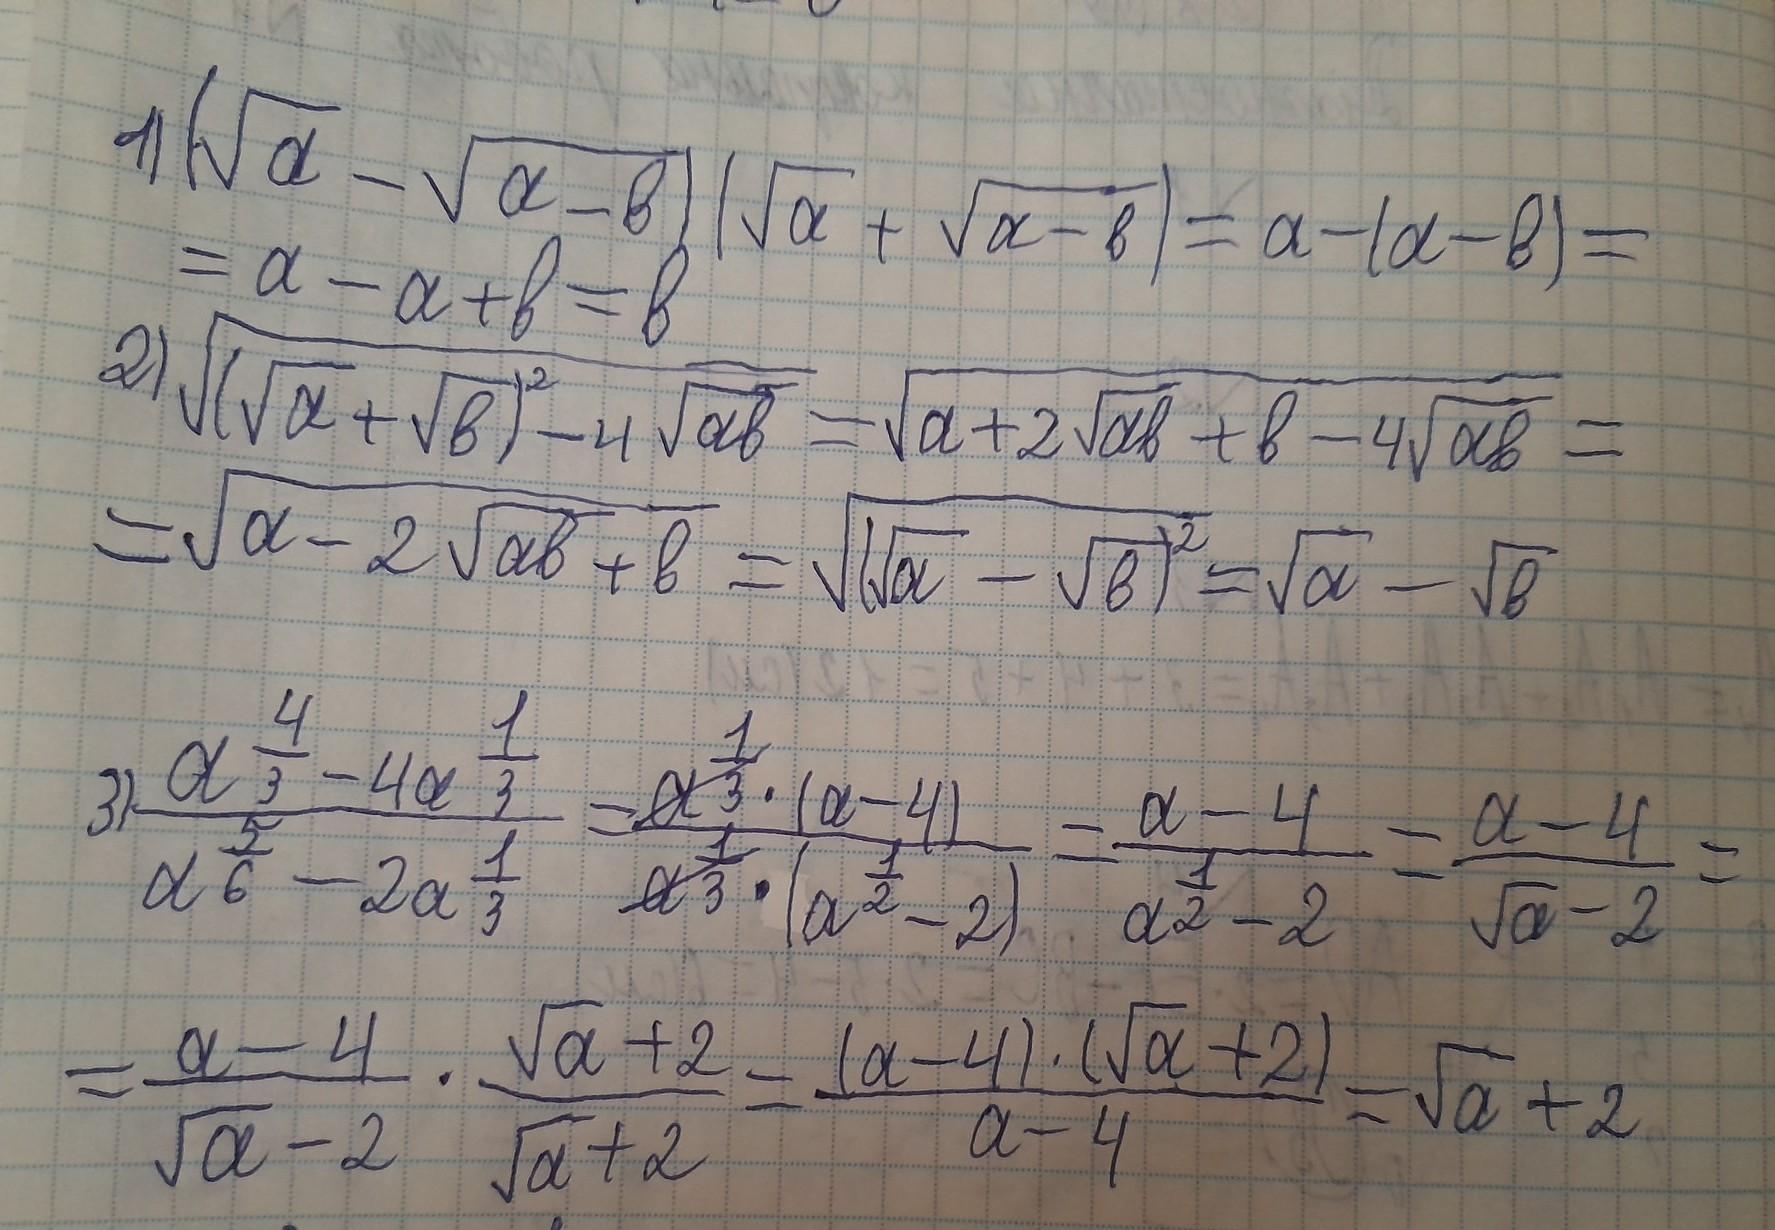 1) (√a − √(a−b)) (√a + √(a−b)) = a−(a−b) =
= a − a + b = b
2) √((√a + √b)² − 4√(ab)) = √(a + 2√(ab) + b − 4√(ab)) =
= √(a − 2√(ab) + b) = √((√a − √b)²) = √a − √b
3) (a^(4/3) − 4a^(1/3)) / (a^(5/6) − 2a^(1/3)) = (a^(1/3) · (a−4)) / (a^(1/3) · (a^(1/2) − 2)) = (a − 4) / (a^(1/2) − 2) = (a − 4) / (√a − 2) =
= (a − 4) / (√a − 2) · (√a + 2) / (√a + 2) = ((a−4) · (√a + 2)) / (a − 4) = √a + 2